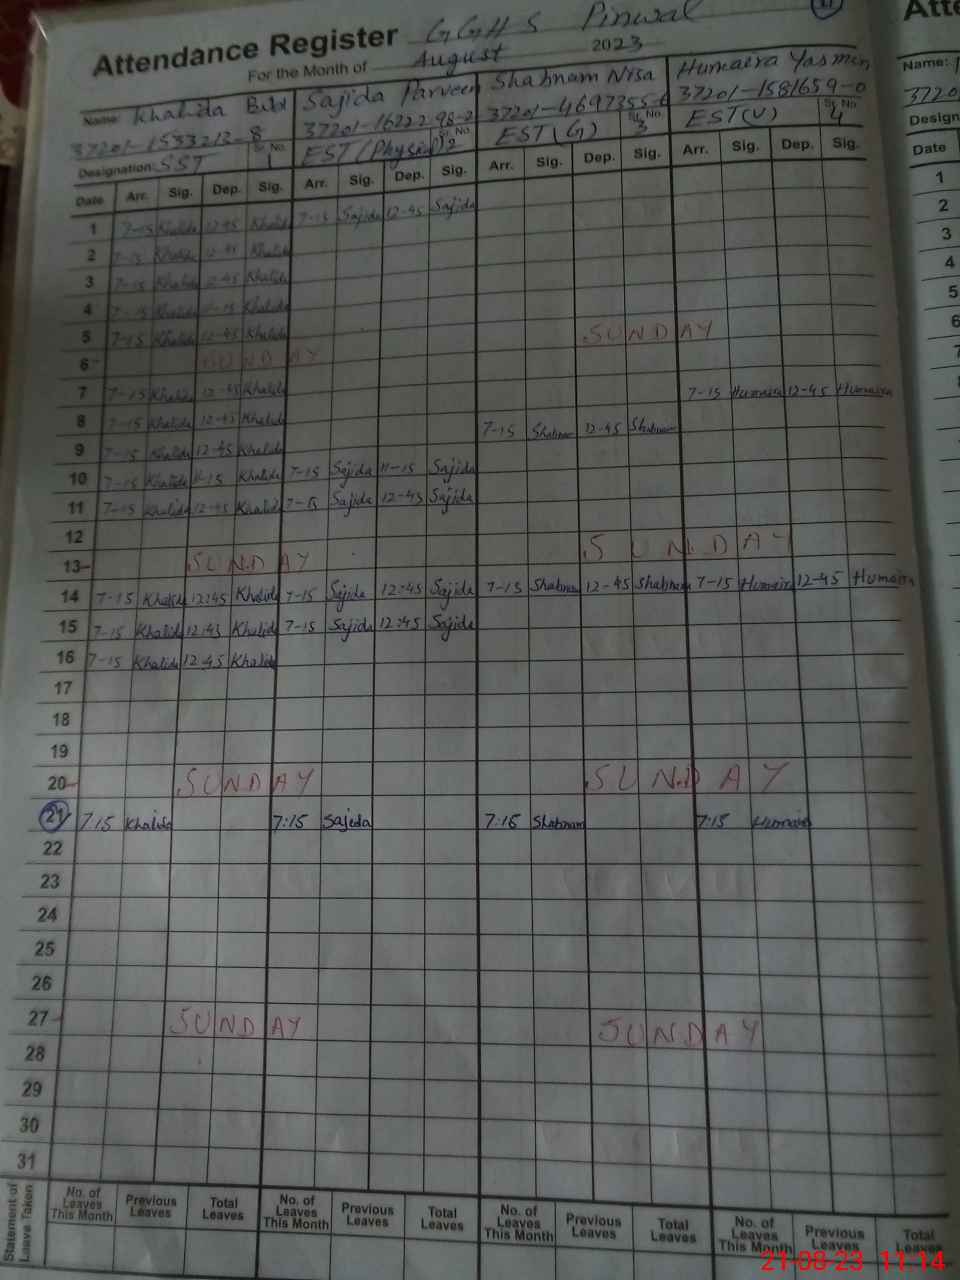 Attendance Register GGHS Pinwal
For the Month of August 2023
Name: Khalida Bibi Sajida Parveen Shabnam Nisa Humaira Yasmin
37201-1533213-8 37201-16222 98-2 37201-4697355-6 37201-1581659-0
Designation: SST Sr. No. 1 EST (Physical) Sr. No. 2 EST (G) Sr. No. 3 EST (U) Sr. No. 4
Date Arr. Sig. Dep. Sig. Arr. Sig. Dep. Sig. Arr. Sig. Dep. Sig. Arr. Sig. Dep. Sig.
1 7-15 Khalida 12-45 Khalida 7-15 Sajida 12-45 Sajida
2 7-15 Khalida 12-45 Khalida
3 7-15 Khalida 12-45 Khalida
4 7-15 Khalida Khalida
5 7-15 Khalida 12-45 Khalida SUNDAY
6 SUNDAY
7 7-15 Khalida 12-45 Khalida 7-15 Humaira 12-45 Humaira
8 7-15 Khalida 12-45 Khalida 7-15 Shabnam 12-45 Shabnam
9 7-15 Khalida 12-45 Khalida
10 7-15 Khalida 11-15 Khalida 7-15 Sajida 11-15 Sajida
11 7-15 Khalida 12-45 Khalida 7-15 Sajida 12-45 Sajida
12
13 SUNDAY SUNDAY
14 7-15 Khalida 12:45 Khalida 7-15 Sajida 12:45 Sajida 7-15 Shabnam 12-45 Shabnam 7-15 Humaira 12-45 Humaira
15 7-15 Khalida 12:45 Khalida 7-15 Sajida 12:45 Sajida
16 7-15 Khalida 12-45 Khalida
17
18
19
20 SUNDAY SUNDAY
21 7:15 Khalida 7:15 Sajeda 7:15 Shabnam 7:15 Humaira
22
23
24
25
26
27 SUNDAY SUNDAY
28
29
30
31
Statement of Leave Taken
No. of Leaves This Month Previous Leaves Total Leaves No. of Leaves This Month Previous Leaves Total Leaves No. of Leaves This Month Previous Leaves Total Leaves No. of Leaves This Month Previous Leaves Total Leaves
Atte
Name:
3720
Design
Date
1
2
3
4
5
6
7
21-08-23 11:14